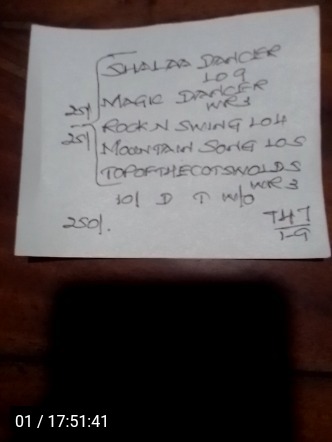 SHALAA DANCER
109
25/ MAGIC DANCER
WR3
25/ ROCK N SWING 104
MOUNTAIN SONG 105
TOPOFTHECOTSWOLDS
WR3
10/ D T W/O
250/.
T47
1-9
01 / 17:51:41